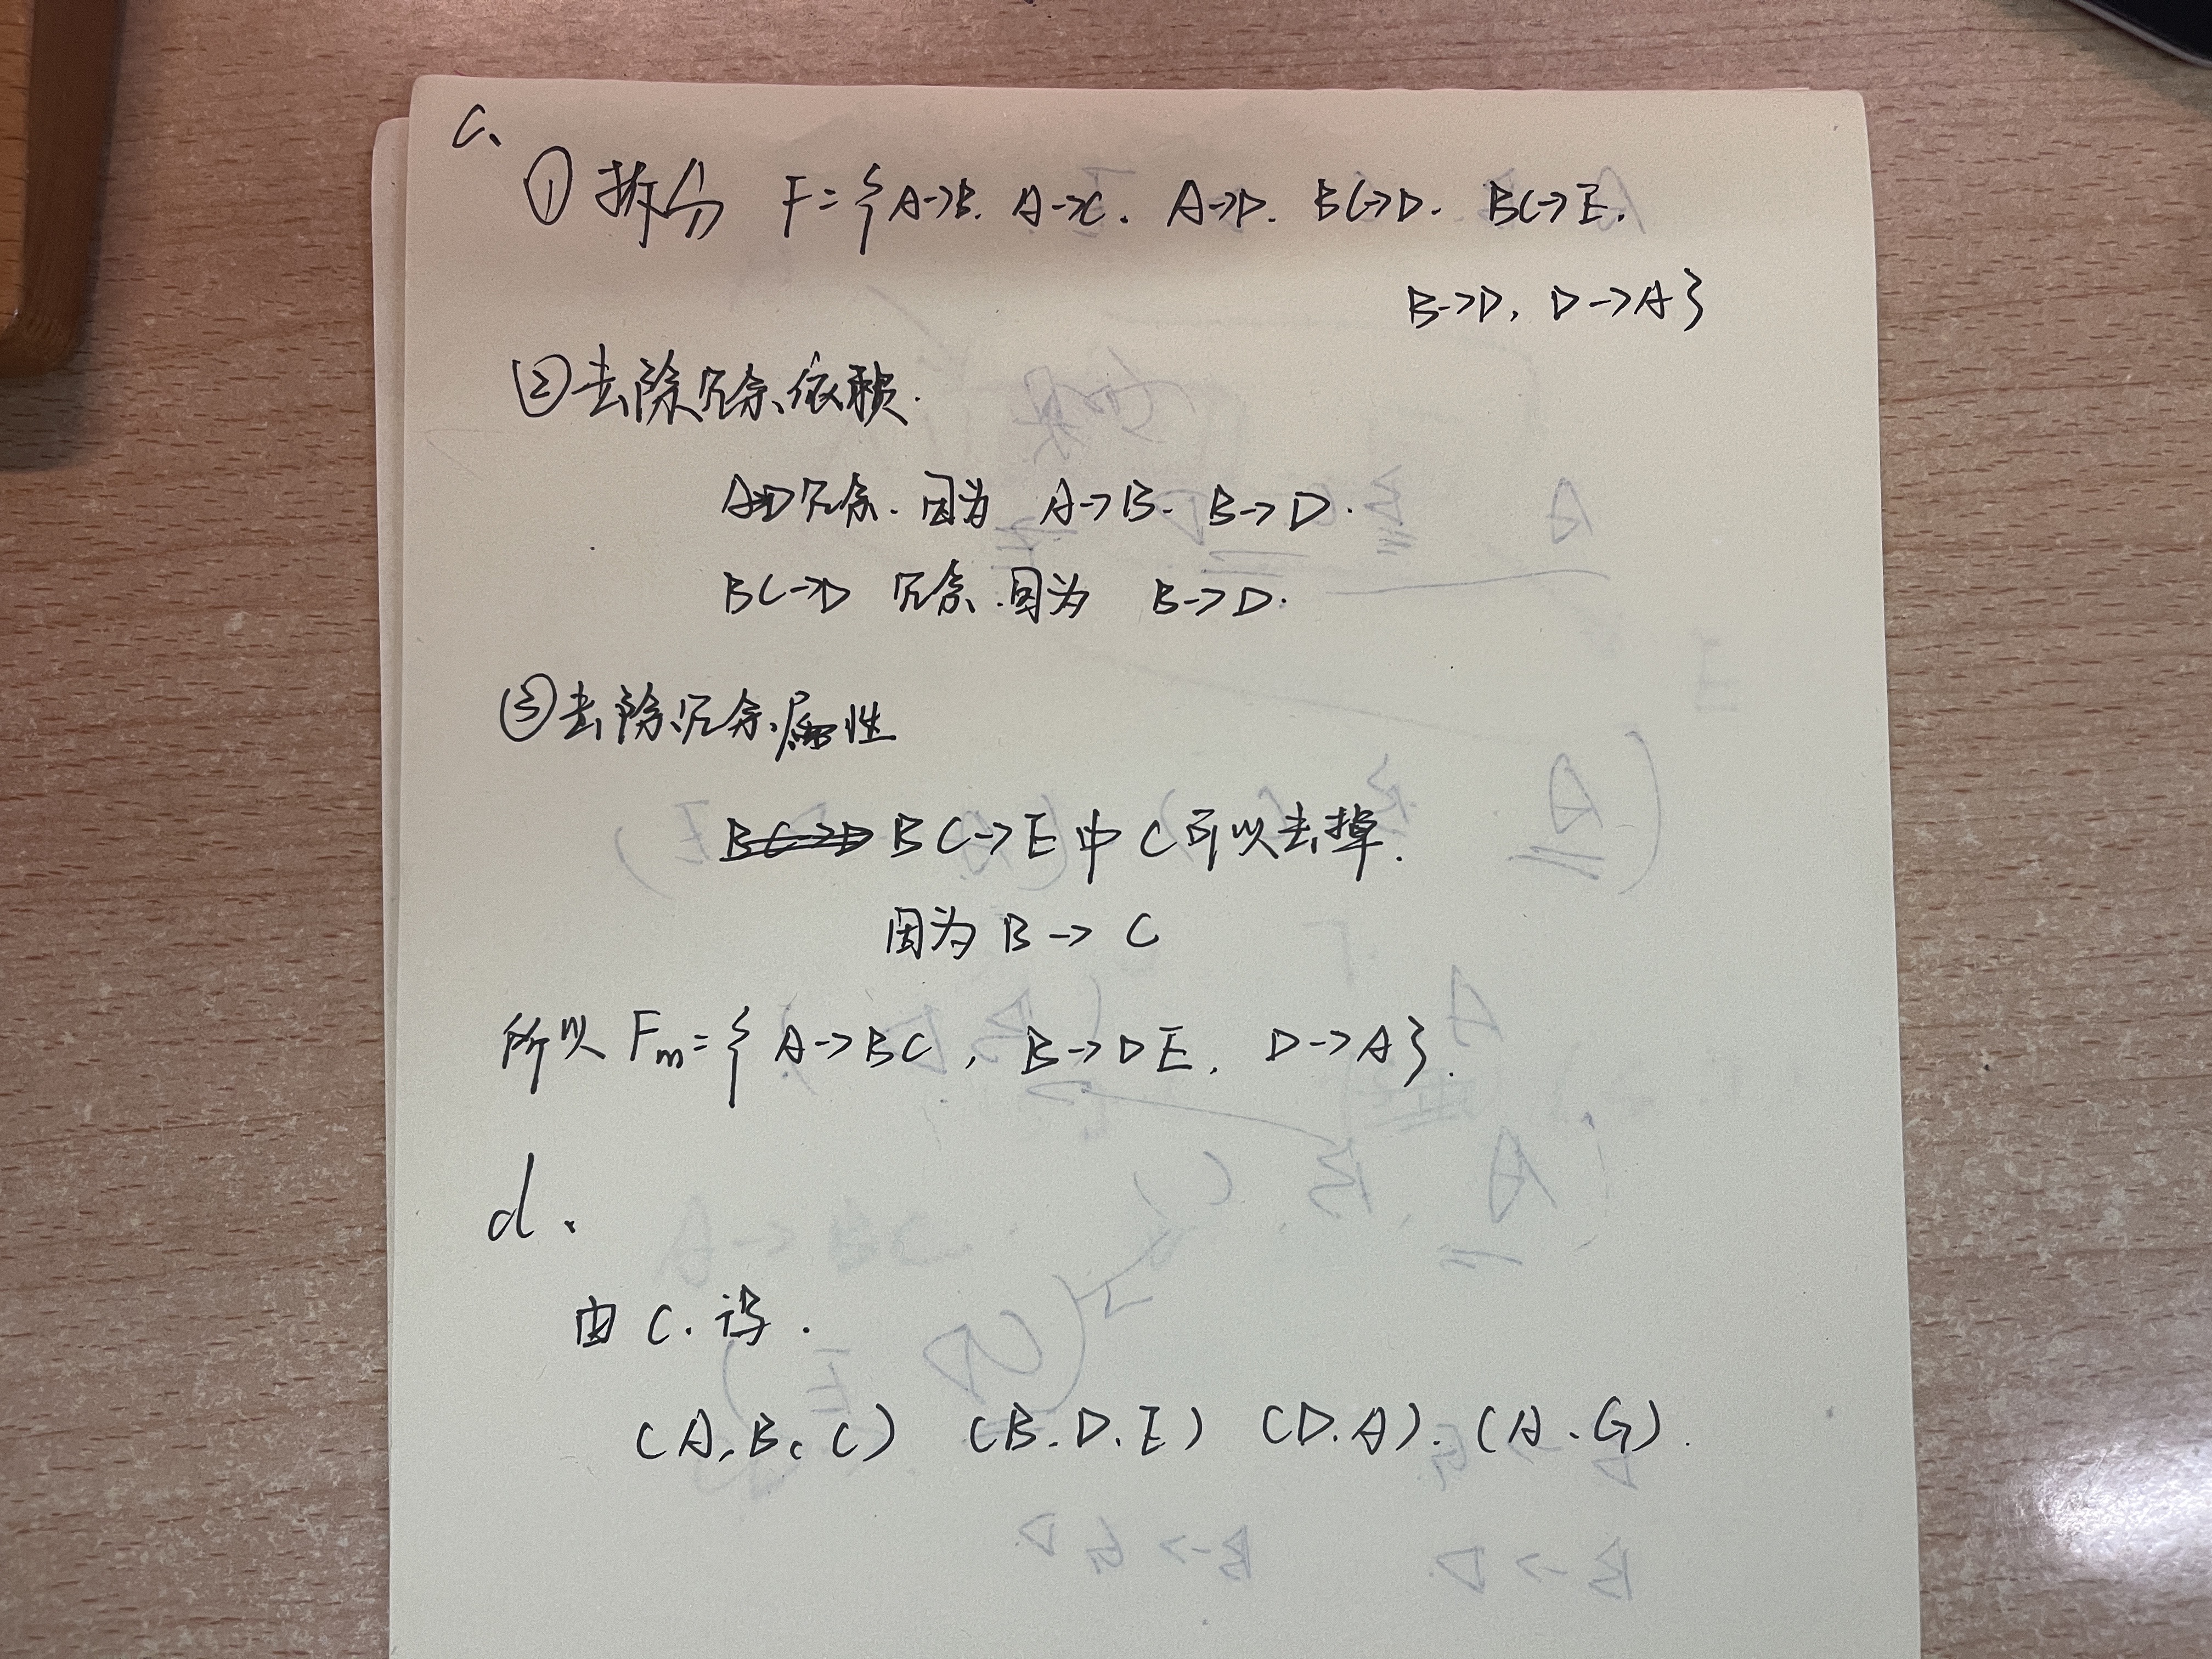 c、
① 拆分 F={A->B. A->C. A->D. BC->D. BC->E.
B->D, D->A}
②去除冗余依赖.
A->D冗余. 因为 A->B. B->D.
BC->D 冗余.因为 B->D.
③去除冗余属性
BC->E中C可以去掉.
因为 B->C
所以 Fm={ A->BC, B->DE, D->A}.
d、
由 C. 得.
(A,B,C) (B.D.E) (D.A). (A.G).